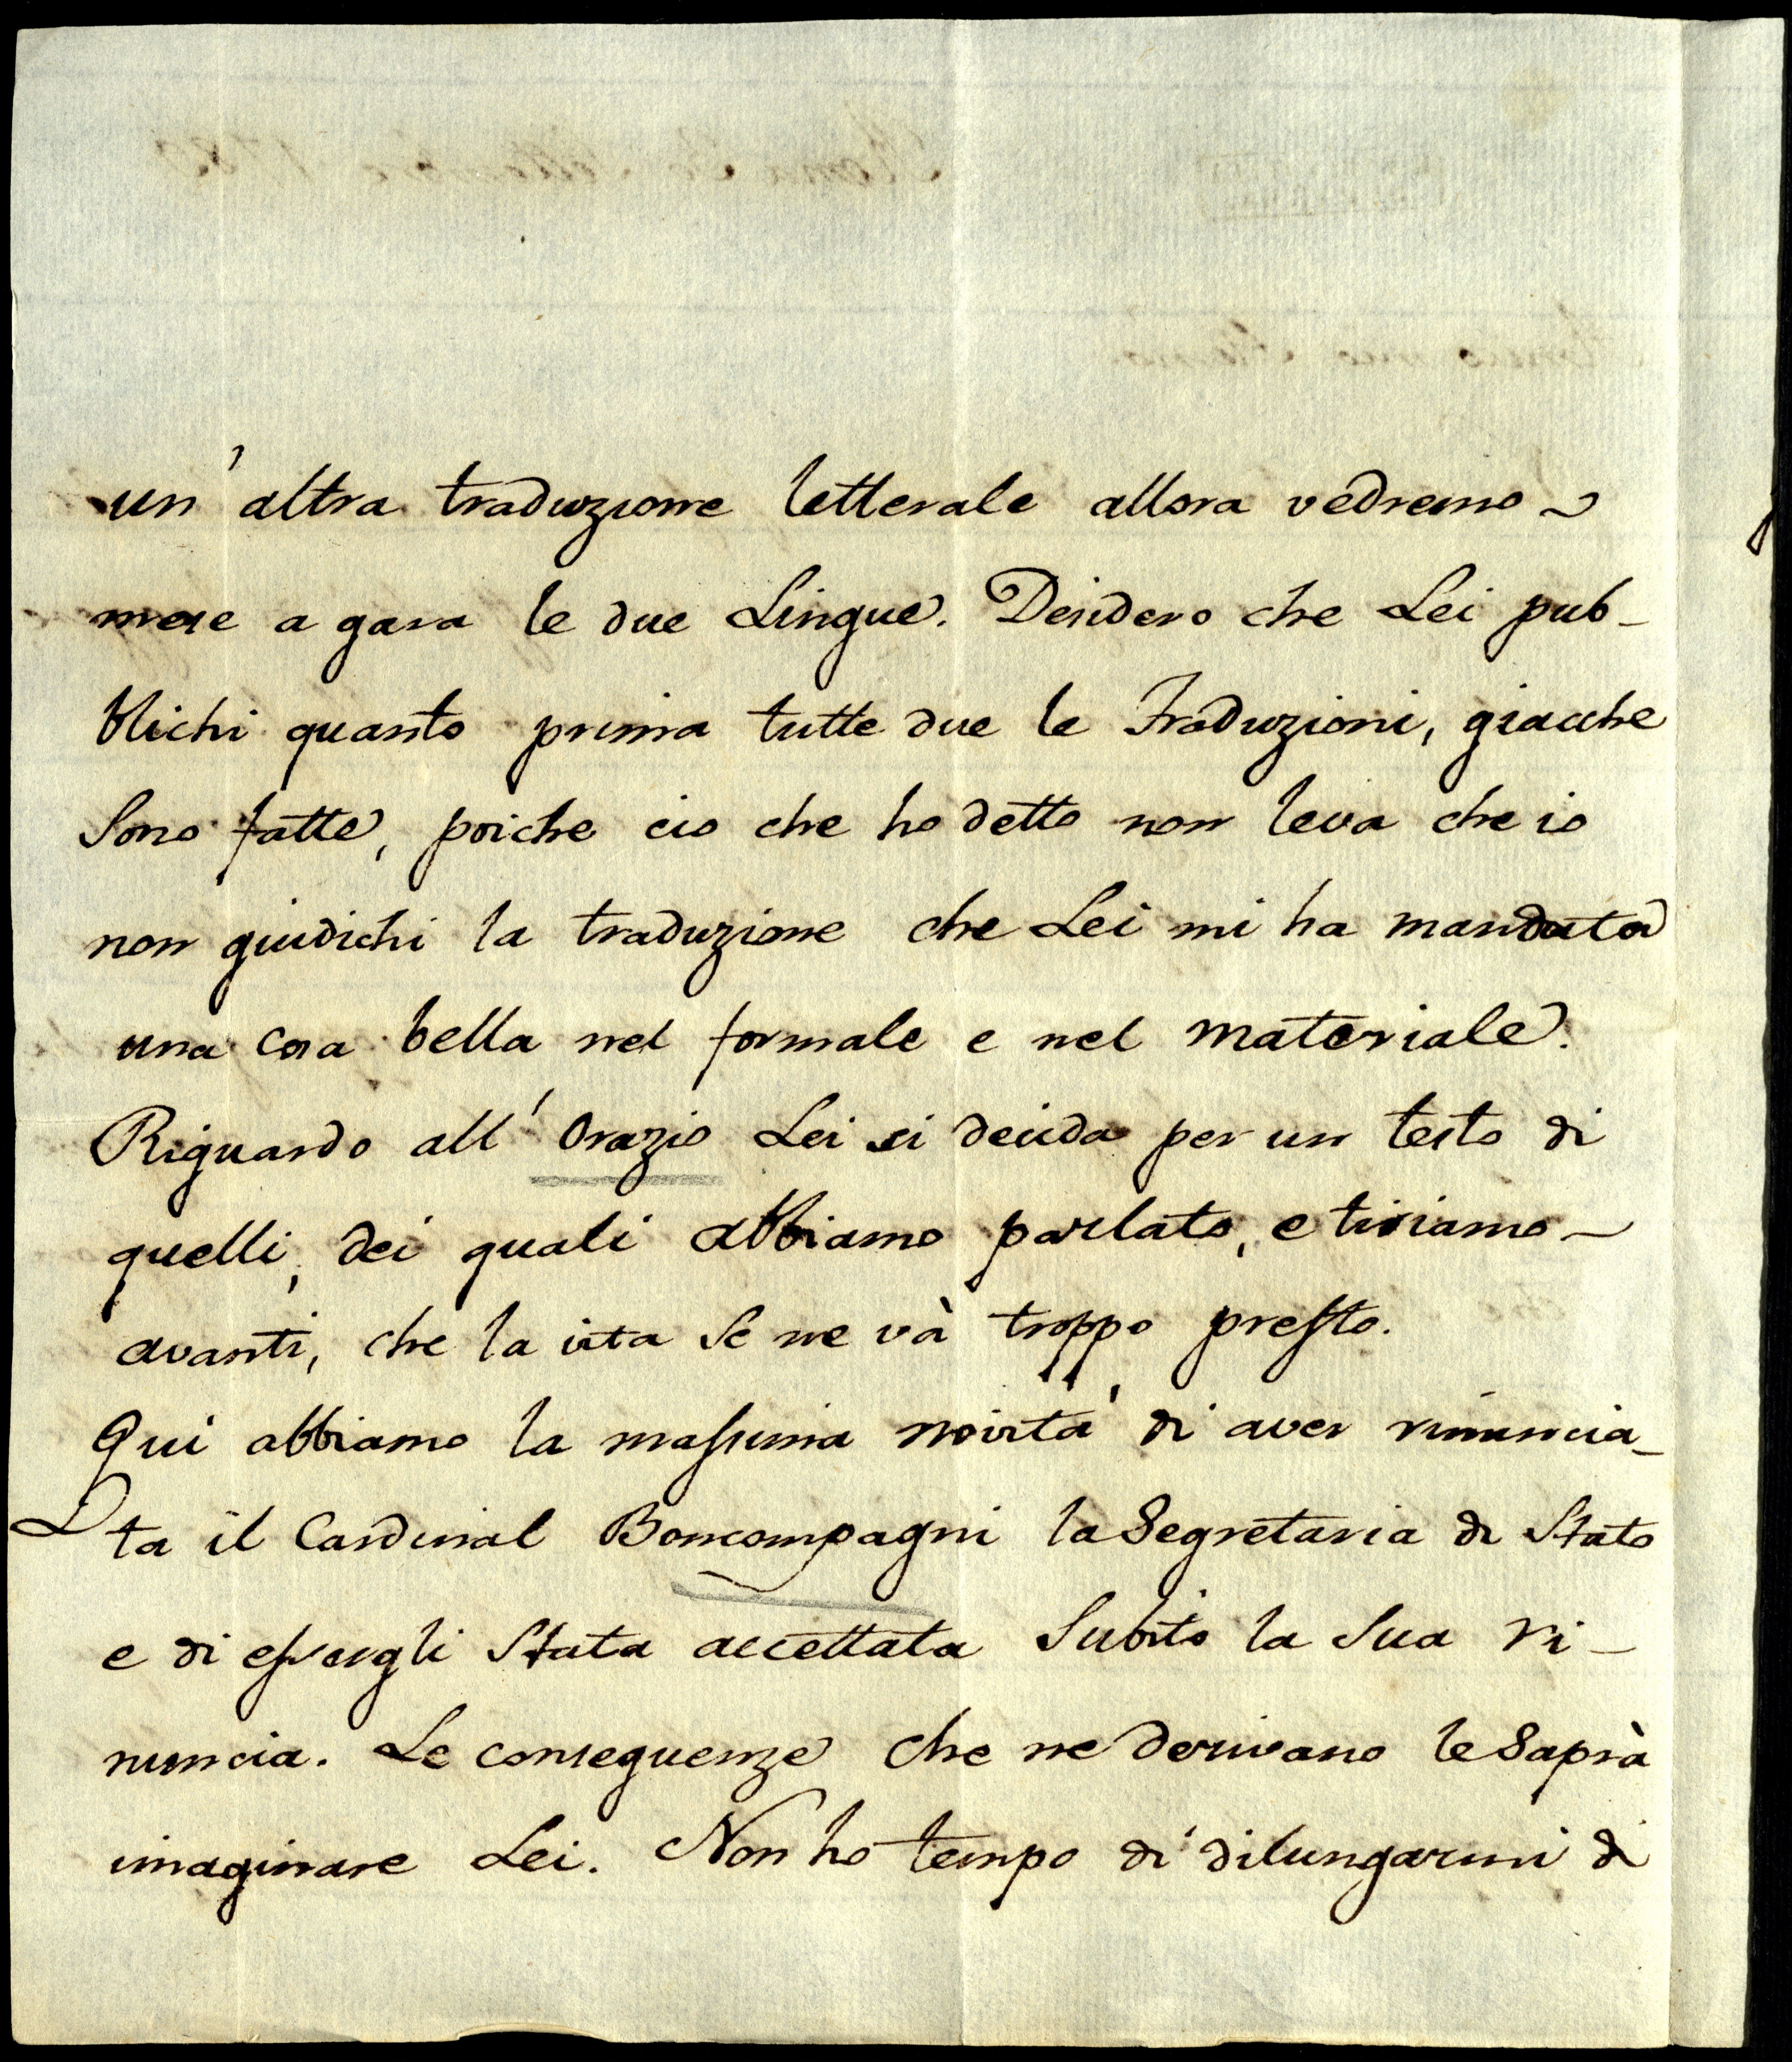 un' altra traduzione letterale allora vedremo
messe a gara le due Lingue. Desidero che Lei pub-
blichi quanto prima tutte due le Traduzioni, giacche
Sono fatte, poiche cio che ho detto non leva che io
non giudichi la traduzione che Lei mi ha mandata
una cosa bella nel formale e nel materiale.
Riguardo all' Orazio Lei si decida per un testo di
quelli, dei quali abbiamo parlato, e tiriamo
avanti, che la vita Se ne và troppo presto.
Qui abbiamo la massima novità di aver rinuncia-
ta il Cardinal Boncompagni la Segretaria di Stato
e di essergli Stata accettata Subito la Sua ri-
nuncia. Le conseguenze che ne derivano le Saprà
imaginare Lei. Non ho tempo di dilungarmi di